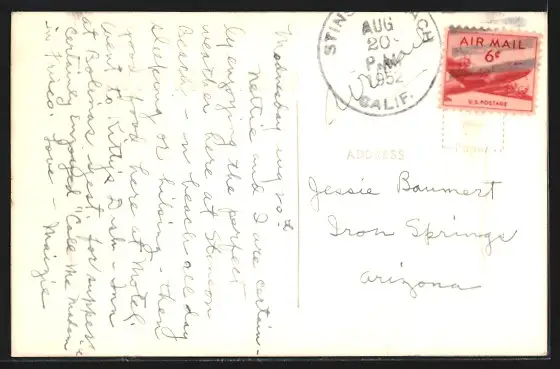 Wednesday Aug 20th
Nettie and I are certain-
ly enjoying the perfect
weather here at Stinson
Beach - on beach all day
sleeping or hiking - then
good food here at Motel.
Went to Kitty's Dish - Inn
at Bolinas yest. for supper
Certainly enjoyed "Call Me Madam"
in Frisco. Love - Maizie
STINSON BEACH
AUG
20
P.M.
1952
CALIF.
Air Mail
AIR MAIL
6¢
U.S. POSTAGE
ADDRESS
Jessie Baumert
Iron Springs
Arizona